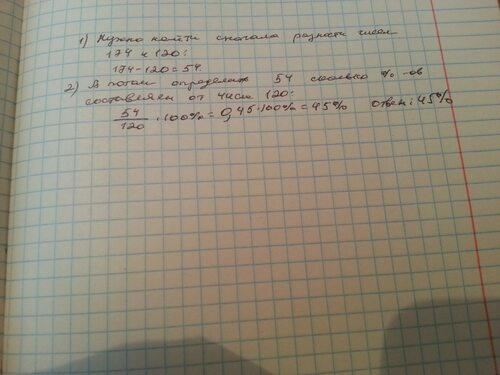 1) Нужно найти сначала разность чисел
174 и 120:
174-120=54
2) А потом определить 54 сколько %-ов
составляем от числа 120:
54/120 · 100% = 0,45·100% = 45% ответ: 45%